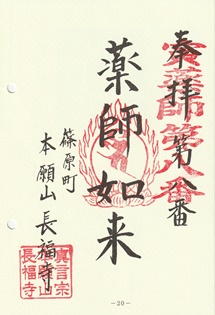 奉拝 第八番
霊薬師第八番
薬師如来
篠原町
本願山 長福寺
真言宗
長福寺
-20-